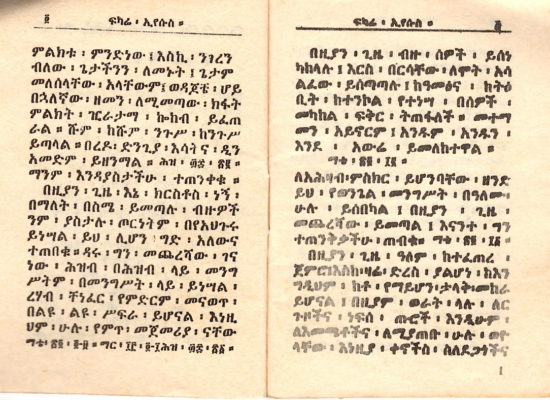 ፪ ፍካሬ ፡ ኢየሱስ ።
ምልክቱ ፡ ምንድነው ፤ እስኪ ፡ ንገረን
ብለው ፡ ጌታችንን ፡ ለመኑት ፤ ጌታም
መለሰላቸው ፡ አላቸውም ፤ ወዳጆቼ ፡ ሆይ
በኋለኛው ፡ ዘመን ፡ ለሚመጣው ፡ ክፋት
ምልክት ፡ ጊራታማ ፡ ኰከብ ፡ ይፈጠ
ራል ። ሹም ፡ ከሹም ፡ ንጉሥ ፡ ከንጉሥ
ይጣላል ። በረዶ ፡ ድንጊያ ፡ እሳትና ፡ ዲን
አመድም ፡ ይዘንማል ። ሕዝ ፡
ማንም ፡ እንዳያስታችሁ ፡ ተጠንቀቁ ።
በዚያን ፡ ጊዜ ፡ እኔ ፡ ክርስቶስ ፡ ነኝ ፡
በማለት ፡ በስሜ ፡ ይመጣሉ ፡ ብዙዎች
ንም ፡ ያስታሉ ፡ ጦርነትም ፡ በየአህጉሩ
ይነሣል ፡ ይህ ፡ ሊሆን ፡ ግድ ፡ አለውና
ተጠበቁ ። ዳሩ ፡ ግን ፡ መጨረሻው ፡ ገና
ነው ፡ ሕዝብ ፡ በሕዝብ ፡ ላይ ፡ መንግ
ሥትም ፡ በመንግሥት ፡ ላይ ፡ ይነሣል ።
ረሃብ ፡ ቸነፈር ፡ የምድርም ፡ መናወጥ ፡
በልዩ ፡ ልዩ ፡ ሥፍራ ፡ ይሆናል ፡ እነዚ
ህም ፡ ሁሉ ፡ የምጥ ፡ መጀመሪያ ፡ ናቸው
ማቴ ፡ ማር ፡
ፍካሬ ፡ ኢየሱስ ።
በዚያን ፡ ጊዜ ፡ ብዙ ፡ ሰዎች ፡ ይሰነ
ካከላሉ ፤ እርስ ፡ በርሳቸው ፡ ለሞት ፡ አሳ
ልፈው ፡ ይሰጣጣሉ ፡ ከዓመፅና ፡ ከትዕ
ቢት ፡ ከተንኮል ፡ የተነሣ ፡ በሰዎች ፡
መካከል ፡ ፍቅር ፡ ትጠፋለች ። መተማ
መን ፡ አይኖርም ፡ አንዱም ፡ አንዱን ፡
እንደ ፡ አውሬ ፡ ይመለከተዋል ።
ማቴ ፡
ለአሕዛብ ፡ ምስክር ፡ ይሆንባቸው ፡ ዘንድ
ይህ ፡ የወንጌል ፡ መንግሥት ፡ በዓለሙ ፡
ሁሉ ፡ ይሰበካል ፤ በዚያን ፡ ጊዜ ፡
መጨረሻው ፡ ይመጣል ፤ እናንተ ፡ ግን
ተጠንቅቃችሁ ፡ ጠብቁ ። ማቴ ፡
በዚያን ፡ ጊዜ ፡ ዓለም ፡ ከተፈጠረ ፡
ጀምሮ ፡ እስከ ፡ ዛሬ ፡ ድረስ ፡ ያልሆነ ፡ ከእን
ግዲህም ፡ ከቶ ፡ የማይሆን ፡ ታላቅ ፡ መከራ
ይሆናል ፤ በዚያም ፡ ወራት ፡ ላሉ ፡ ለር
ጉዞችና ፡ ነፍሰ ፡ ጡሮች ፡ እንዲሁም ፡
ለእመጫቶችና ፡ ለሚያጠቡ ፡ ሁሉ ፡ ወዮ
ላቸው ፡ እነዚያ ፡ ቀኖችስ ፡ ስለደጋጎችና
1